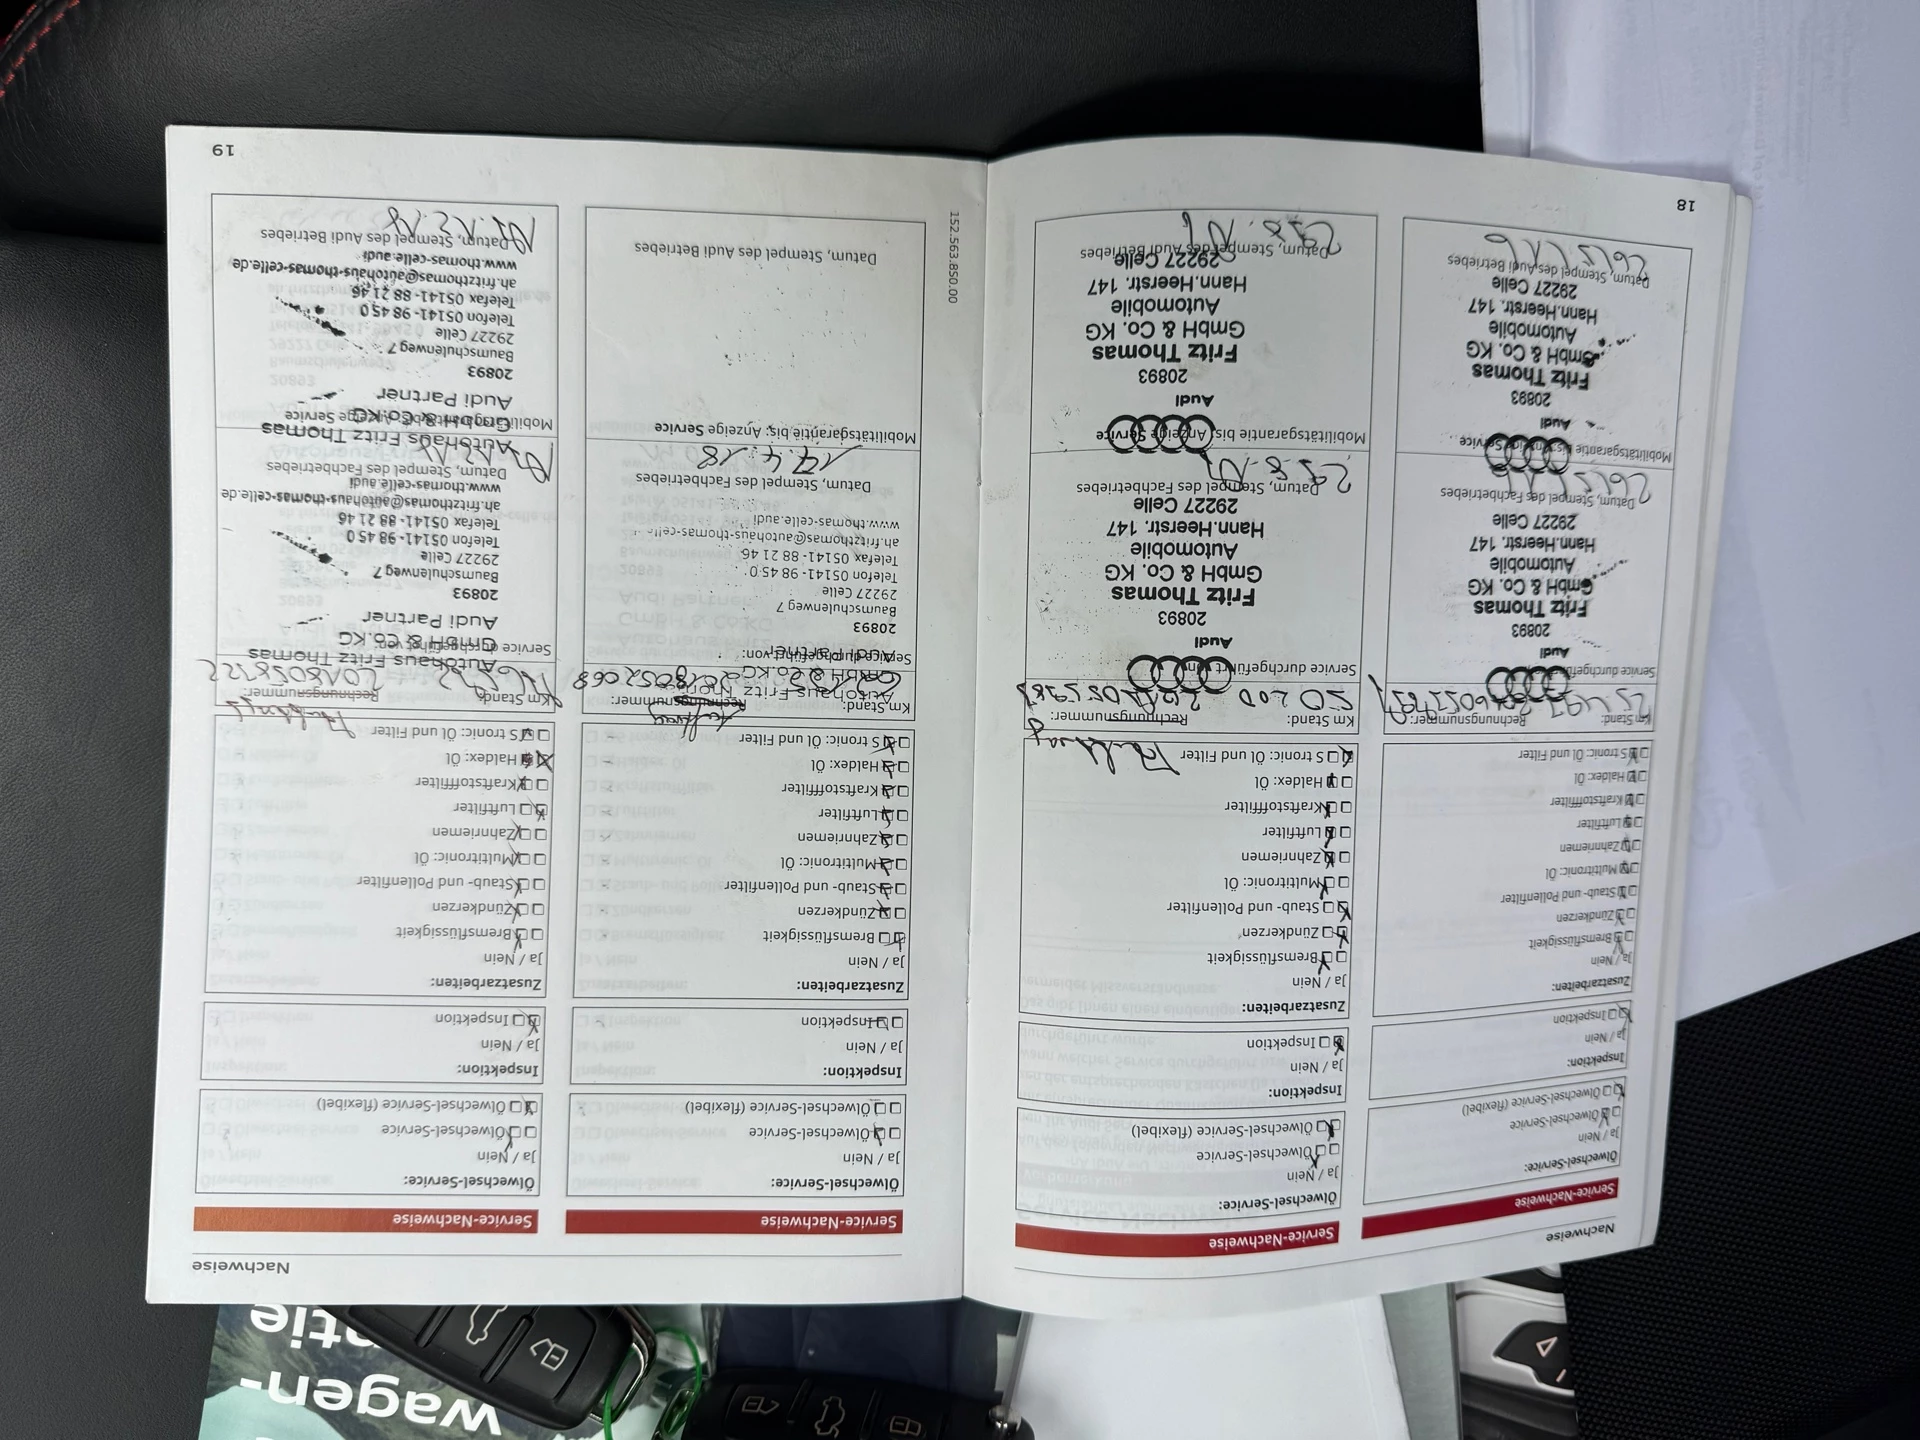 Nachweise
Service-Nachweise
Ölwechsel-Service:
Ja / Nein
Ölwechsel-Service
Ölwechsel-Service (flexibel)
Inspektion:
Ja / Nein
Inspektion
Zusatzarbeiten:
Ja / Nein
Bremsflüssigkeit
Zündkerzen
Staub- und Pollenfilter
Multitronic: Öl
Zahnriemen
Luftfilter
Kraftstofffilter
Haldex: Öl
S tronic: Öl und Filter
Km Stand: Rechnungsnummer:
Service durchgeführt
Audi
20893
Fritz Thomas
GmbH & Co. KG
Automobile
Hann.Heerstr. 147
29227 Celle
Datum, Stempel des Fachbetriebes
Mobilitätsgarantie bis: Service
Audi
20893
Fritz Thomas
GmbH & Co. KG
Automobile
Hann.Heerstr. 147
29227 Celle
Datum, Stempel des Audi Betriebes
18
Service-Nachweise
Ölwechsel-Service:
Ja / Nein
Ölwechsel-Service
Ölwechsel-Service (flexibel)
Inspektion:
Ja / Nein
Inspektion
Zusatzarbeiten:
Ja / Nein
Bremsflüssigkeit
Zündkerzen
Staub- und Pollenfilter
Multitronic: Öl
Zahnriemen
Luftfilter
Kraftstofffilter
Haldex: Öl
S tronic: Öl und Filter
Km Stand: Rechnungsnummer:
Service durchgeführt von:
Audi
20893
Fritz Thomas
GmbH & Co. KG
Automobile
Hann.Heerstr. 147
29227 Celle
Datum, Stempel des Fachbetriebes
Mobilitätsgarantie bis: Anzeige Service
Audi
20893
Fritz Thomas
GmbH & Co. KG
Automobile
Hann.Heerstr. 147
29227 Celle
Datum, Stempel des Audi Betriebes
152.563.850.00
Service-Nachweise
Ölwechsel-Service:
Ja / Nein
Ölwechsel-Service
Ölwechsel-Service (flexibel)
Inspektion:
Ja / Nein
Inspektion
Zusatzarbeiten:
Ja / Nein
Bremsflüssigkeit
Zündkerzen
Staub- und Pollenfilter
Multitronic: Öl
Zahnriemen
Luftfilter
Kraftstofffilter
Haldex: Öl
S tronic: Öl und Filter
Km Stand: Rechnungsnummer:
2018052068
Autohaus Fritz Thomas
GmbH & Co.KG
Service durchgeführt von:
Audi Partner
20893
Baumschulenweg 7
29227 Celle
Telefon 05141- 98 45 0
Telefax 05141- 88 21 46
ah.fritzthomas@autohaus-thomas-celle.de
www.thomas-celle.audi
Datum, Stempel des Fachbetriebes
17.4.18
Mobilitätsgarantie bis: Anzeige Service
Datum, Stempel des Audi Betriebes
Nachweise
Service-Nachweise
Ölwechsel-Service:
Ja / Nein
Ölwechsel-Service
Ölwechsel-Service (flexibel)
Inspektion:
Ja / Nein
Inspektion
Zusatzarbeiten:
Ja / Nein
Bremsflüssigkeit
Zündkerzen
Staub- und Pollenfilter
Multitronic: Öl
Zahnriemen
Luftfilter
Kraftstofffilter
Haldex: Öl
S tronic: Öl und Filter
Km Stand: Rechnungsnummer:
Autohaus Fritz Thomas
Service durchgeführt von:
GmbH & Co.KG
Audi Partner
20893
Baumschulenweg 7
29227 Celle
Telefon 05141- 98 45 0
Telefax 05141- 88 21 46
ah.fritzthomas@autohaus-thomas-celle.de
www.thomas-celle.audi
Datum, Stempel des Fachbetriebes
Autohaus Fritz Thomas
Mobilitätsgarantie bis: Anzeige Service
GmbH & Co.KG
Audi Partner
20893
Baumschulenweg 7
29227 Celle
Telefon 05141- 98 45 0
Telefax 05141- 88 21 46
ah.fritzthomas@autohaus-thomas-celle.de
www.thomas-celle.audi
Datum, Stempel des Audi Betriebes
19
wagen-